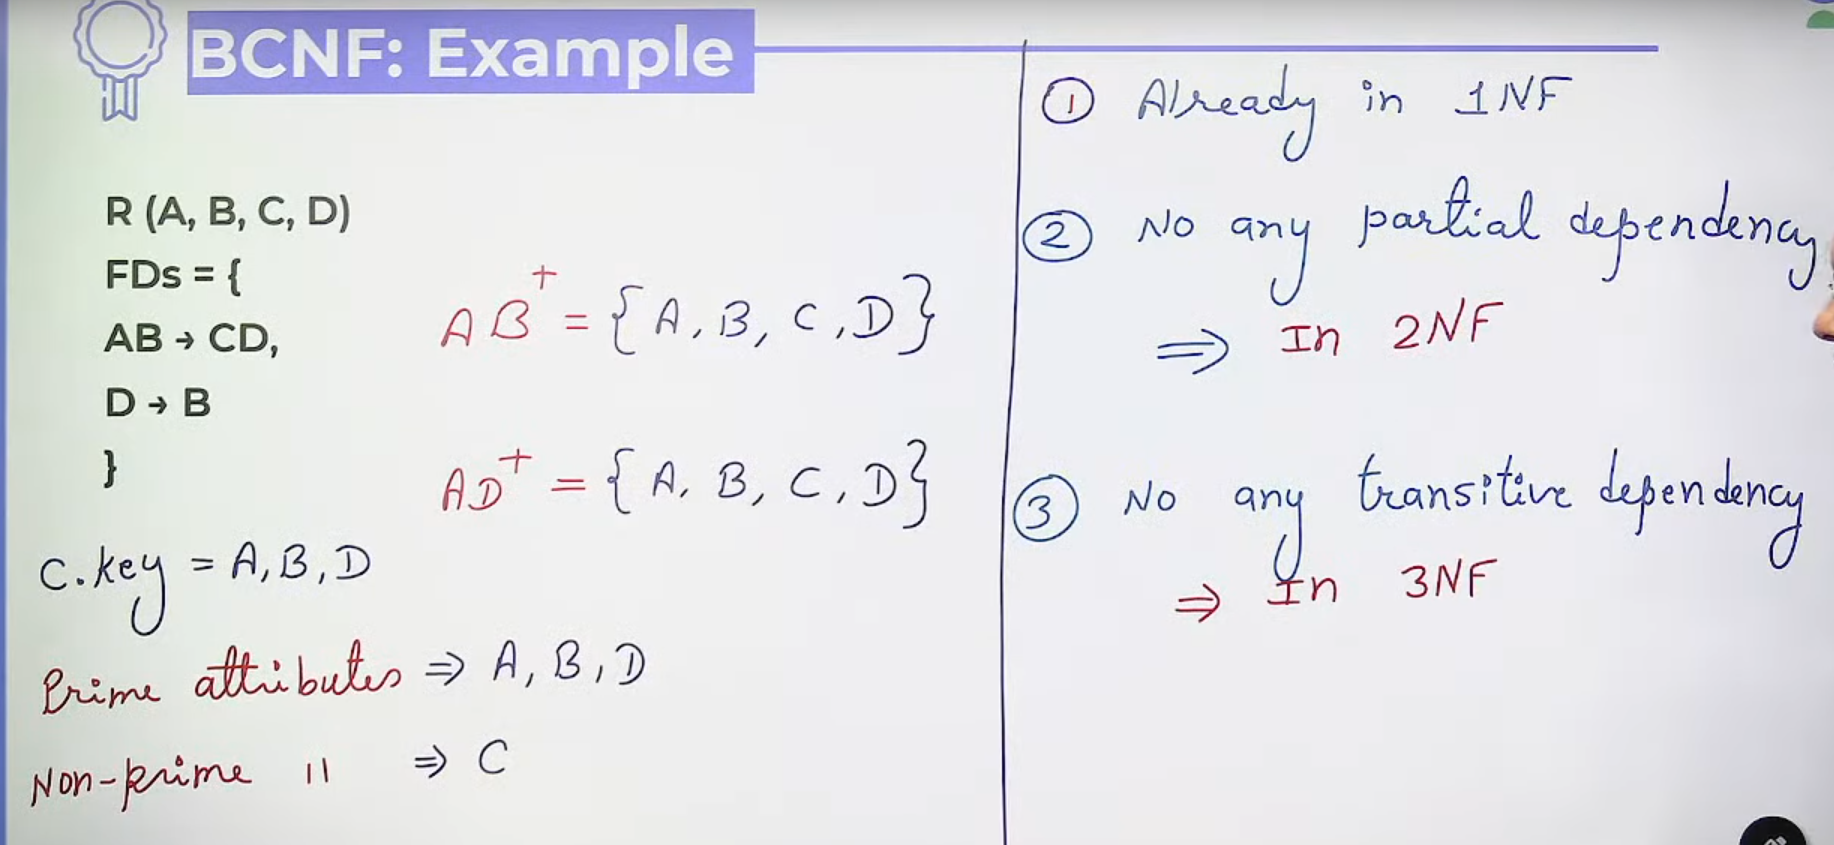 BCNF: Example
R (A, B, C, D)
FDs = {
AB → CD,
D → B
}
AB⁺ = {A, B, C, D}
AD⁺ = {A, B, C, D}
C.key = A, B, D
Prime attributes ⇒ A, B, D
Non-prime 11 ⇒ C
① Already in 1NF
② No any partial dependency
⇒ In 2NF
③ No any transitive dependency
⇒ In 3NF